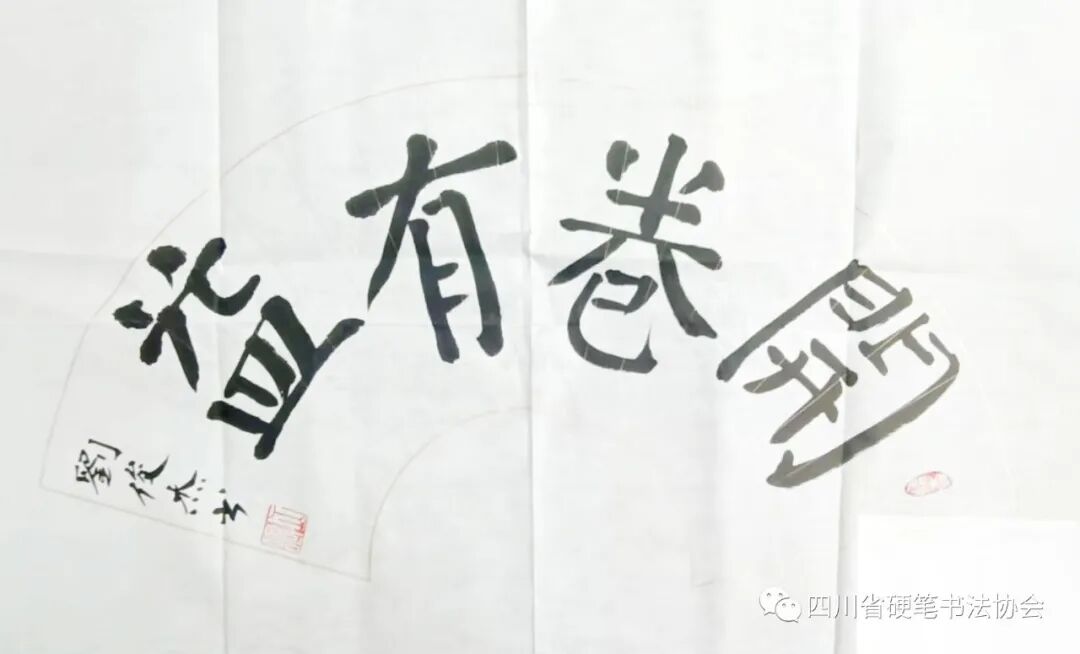 開卷有益
劉俊杰书
四川省硬笔书法协会